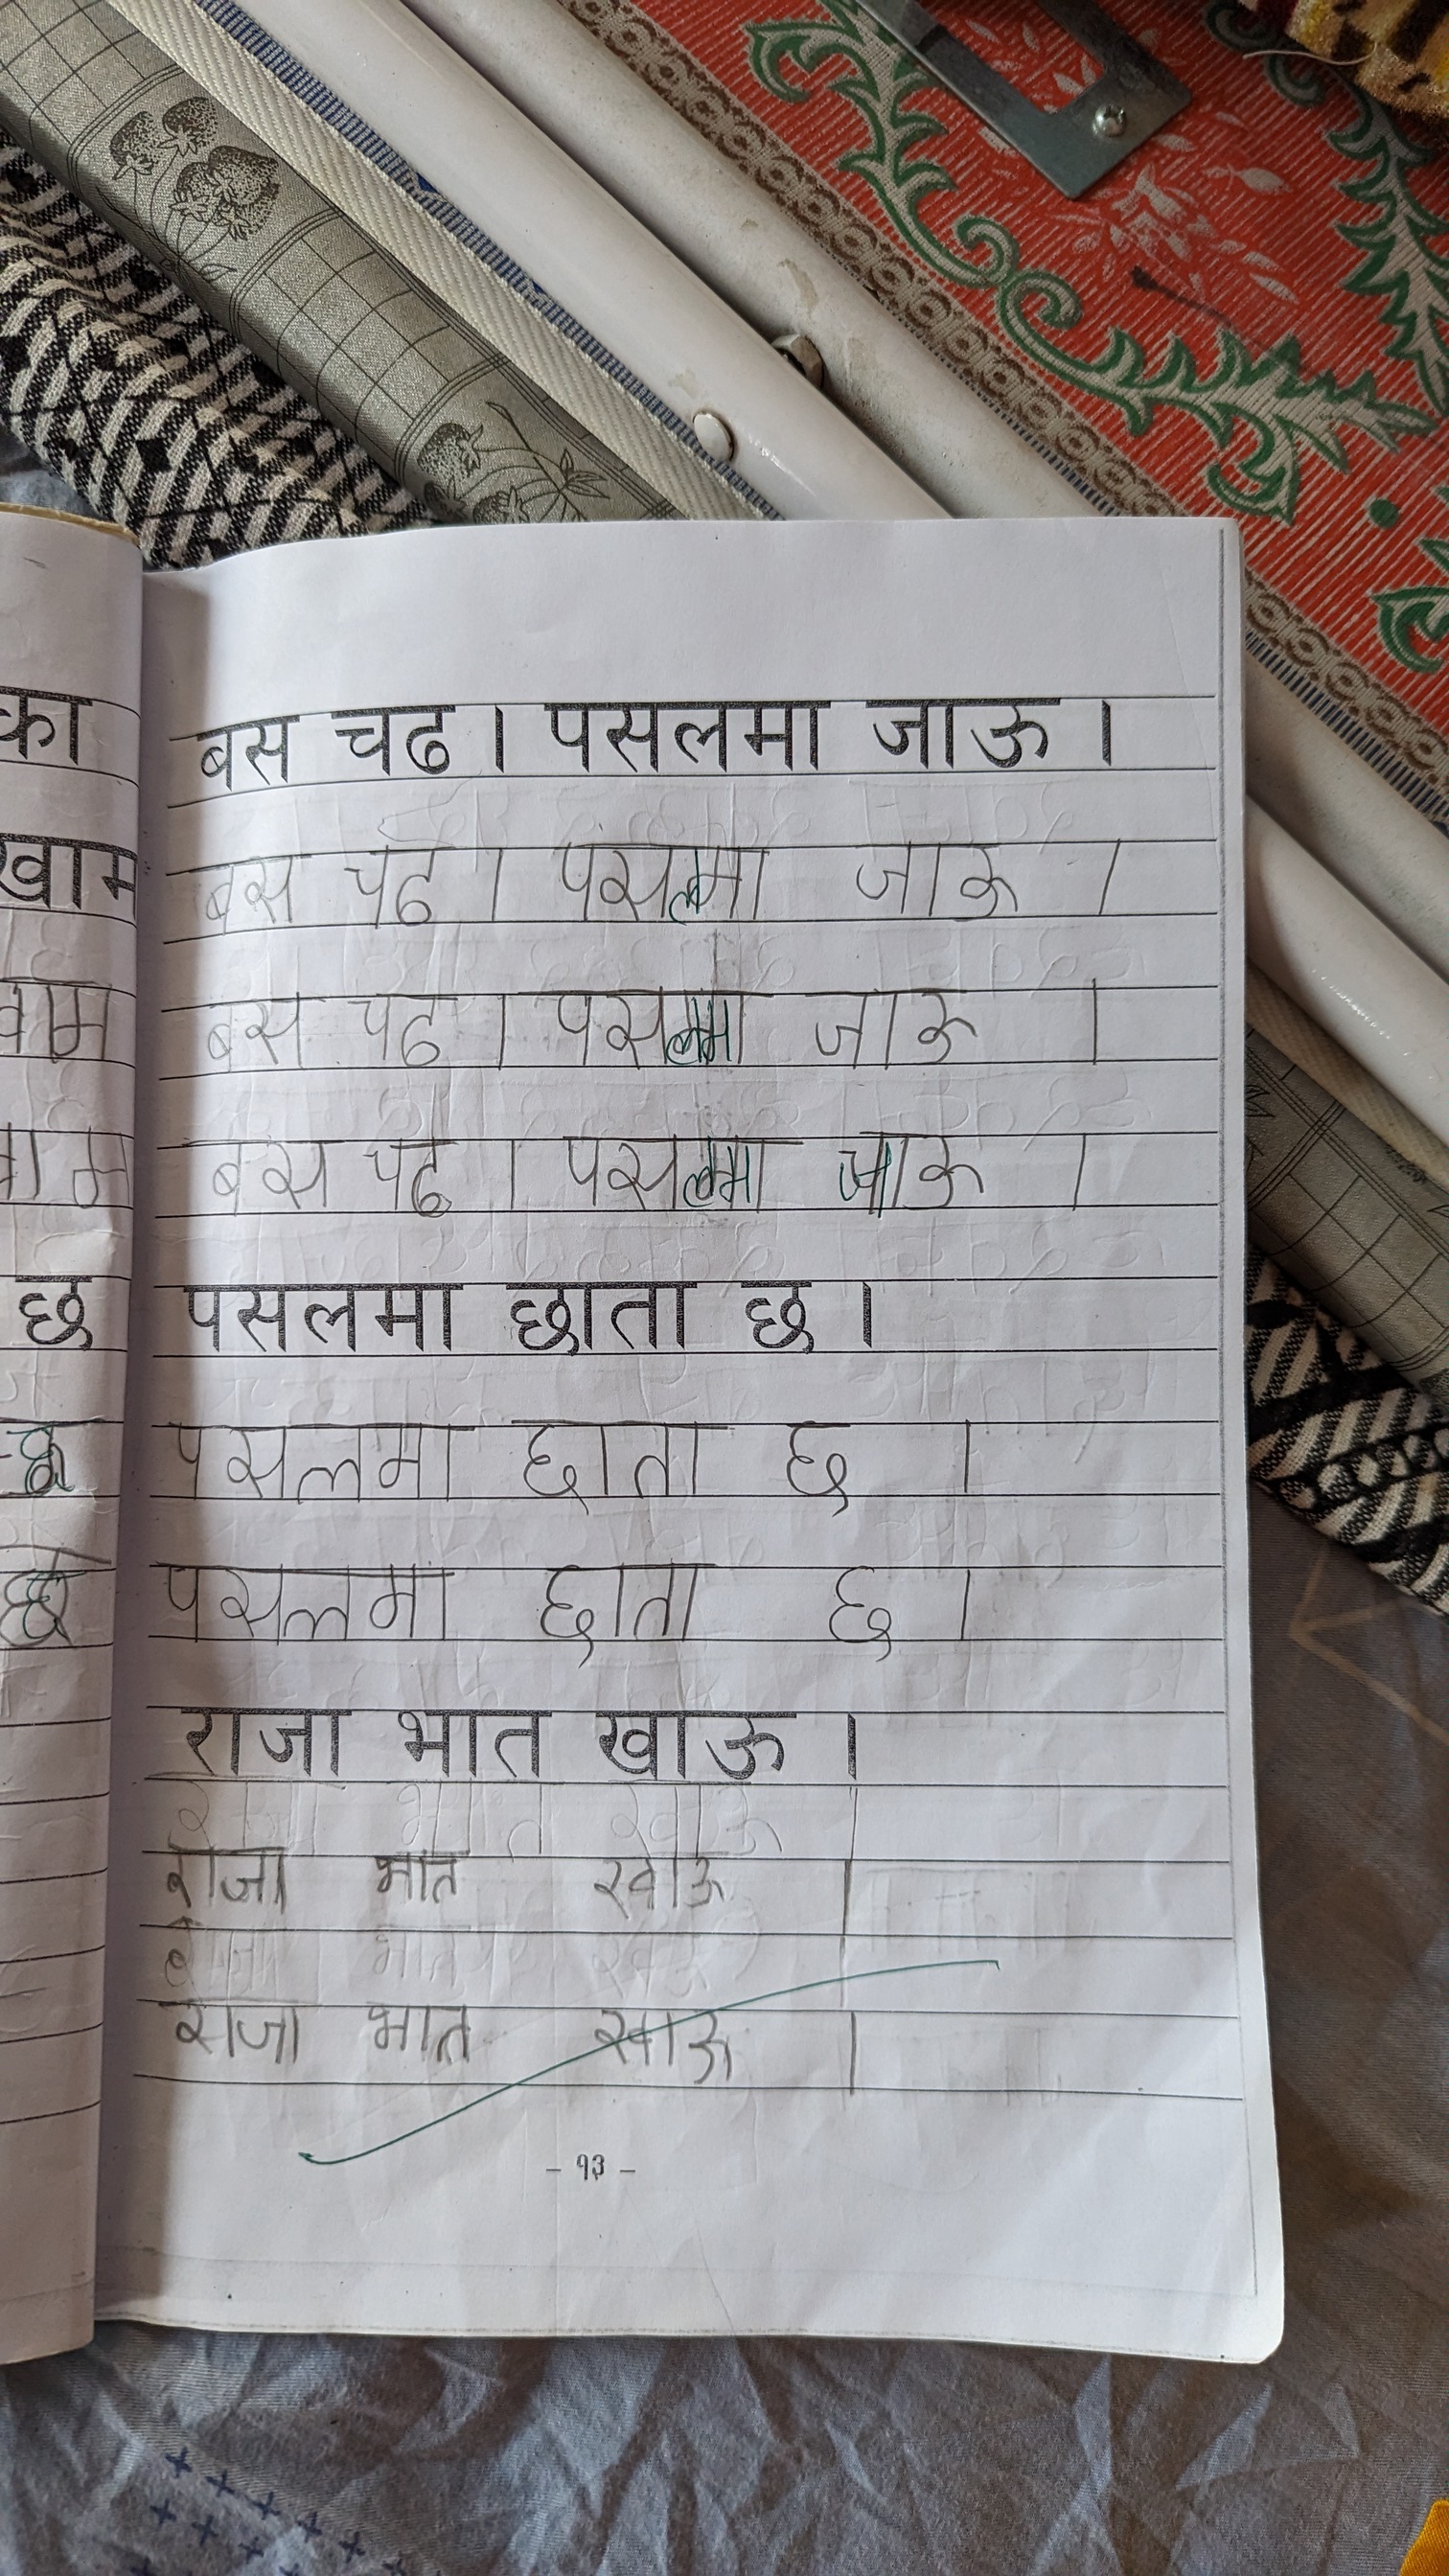 का
खाम
वाम
वा म
छ
छ
छ
बस चढ । पसलमा जाऊ ।
बस चढ । पसलमा जाऊ ।
बस चढ । पसलमा जाऊ ।
बस चढ । पसलमा जाऊ ।
पसलमा छाता छ ।
पसलमा छाता छ ।
पसलमा छाता छ ।
राजा भात खाऊ ।
राजा भात खाऊ ।
राजा भात खाऊ ।
- १३ -